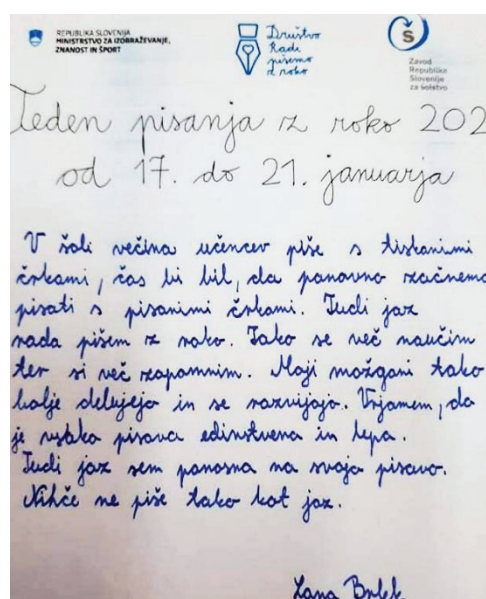 REPUBLIKA SLOVENIJA
MINISTRSTVO ZA IZOBRAŽEVANJE,
ZNANOST IN ŠPORT
Društvo
Radi
pišemo
z roko
Zavod
Republike
Slovenije
za šolstvo
Teden pisanja z roko 202
od 17. do 21. januarja
V šoli večina učencev piše s tiskanimi
črkami, čas bi bil, da ponovno začnemo
pisati s pisanimi črkami. Tudi jaz
rada pišem z roko. Tako se več naučim
ter si več zapomnim. Moji možgani tako
bolje delujejo in se razvijajo. Verjamem, da
je vsaka pisava edinstvena in lepa.
Tudi jaz sem ponosna na svojo pisavo.
Nihče ne piše tako kot jaz.
Lana